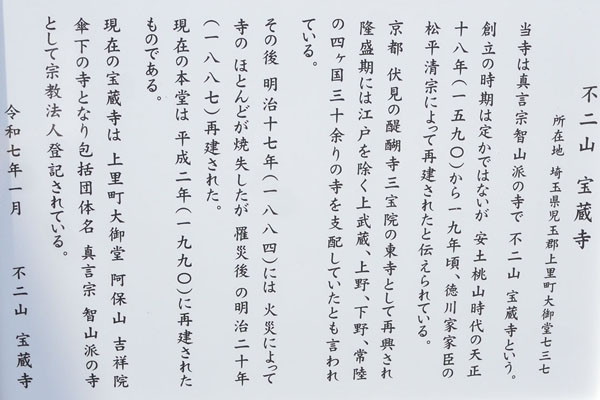 不二山 宝蔵寺
所在地 埼玉県児玉郡上里町大御堂七三七
当寺は真言宗智山派の寺で 不二山 宝蔵寺という。
創立の時期は定かではないが 安土桃山時代の天正
十八年(一五九〇)から一九年頃、徳川家家臣の
松平清宗によって再建されたと伝えられている。
京都 伏見の醍醐寺三宝院の東寺として再興され
隆盛期には江戸を除く上武蔵、上野、下野、常陸
の四ヶ国三十余りの寺を支配していたとも言われ
ている。
その後 明治十七年(一八八四)には 火災によって
寺の ほとんどが焼失したが 罹災後 の明治二十年
(一八八七)再建された。
現在の本堂は 平成二年(一九九〇)に再建された
ものである。
現在の宝蔵寺は 上里町大御堂 阿保山 吉祥院
傘下の寺となり包括団体名 真言宗 智山派の寺
として宗教法人登記されている。
令和七年一月 不二山 宝蔵寺